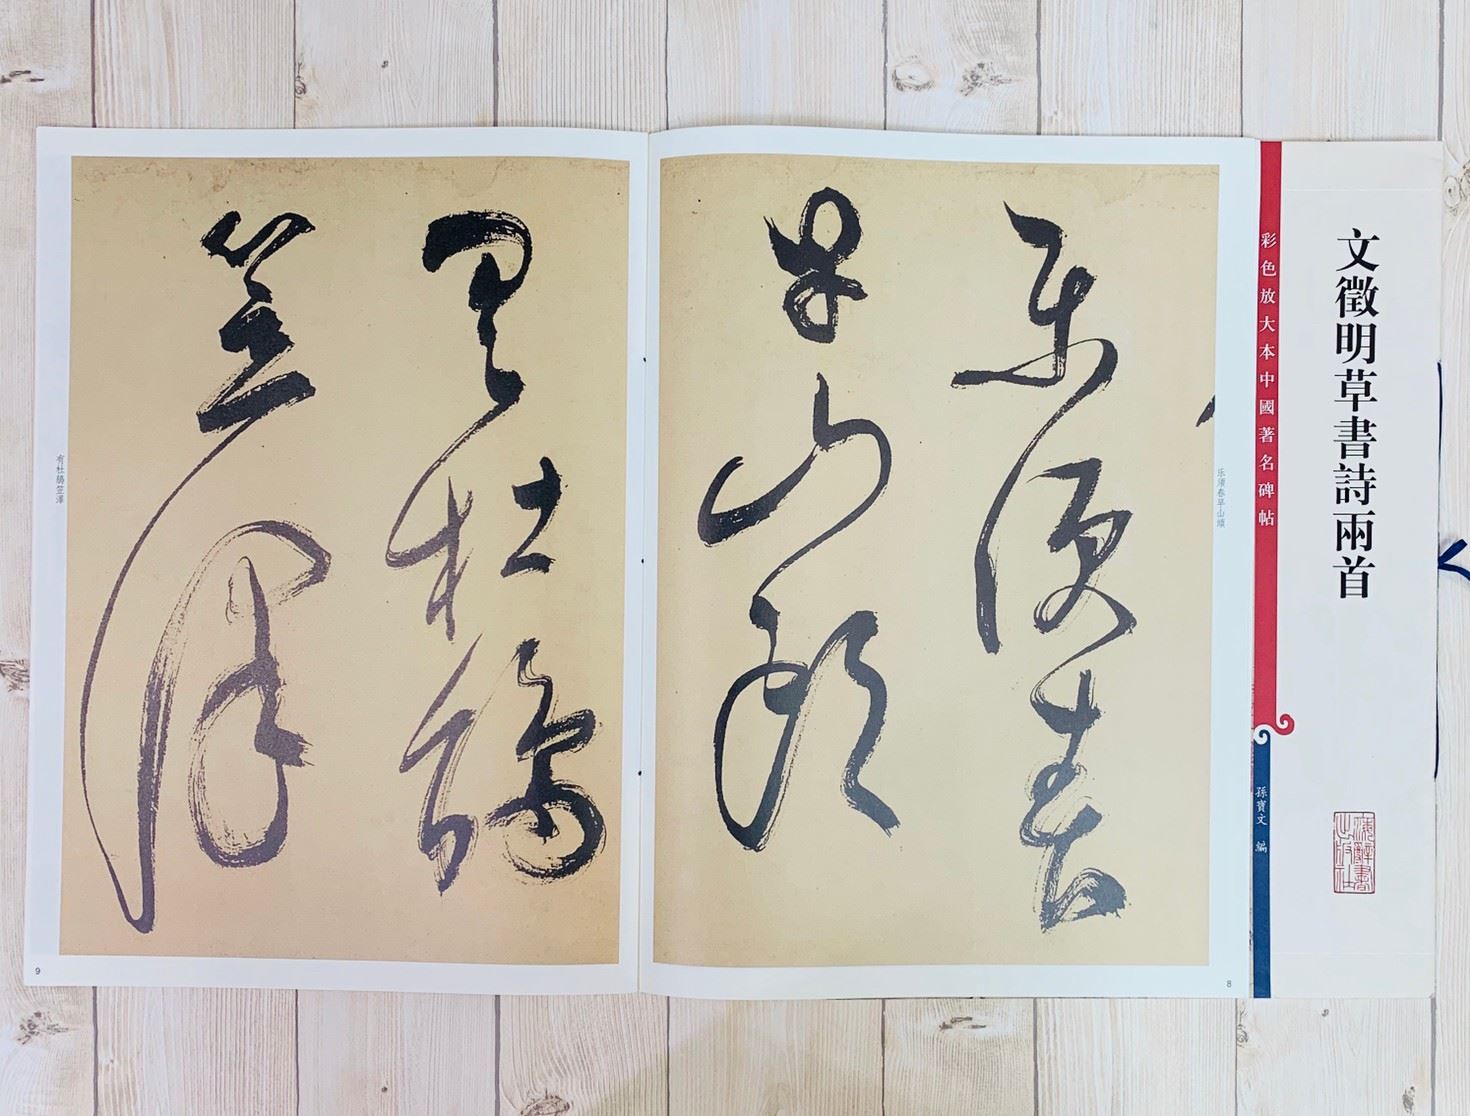 文徵明草書詩兩首
彩色放大本中國著名碑帖
孫寶文 編
樂須春
早山頭
乐須春早山頭
8
有杜鵑
笠澤
有杜鵑笠澤
9